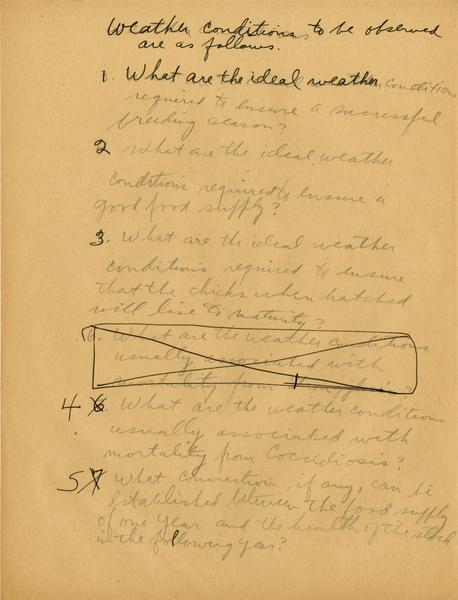 Weather conditions to be observed
are as follows.
1. What are the ideal weather conditions
required to ensure a successful
breeding season?
2 What are the ideal weather
conditions required to ensure a
good food supply?
3. What are the ideal weather
conditions required to ensure
that the chicks when hatched
will live to maturity?
6. What are the weather conditions
usually associated with
mortality from
4 6. What are the weather conditions
usually associated with
mortality from Coccidiosis?
5 7 What connection, if any, can be
established between the food supply
of one year and the health of the stock
in the following year?